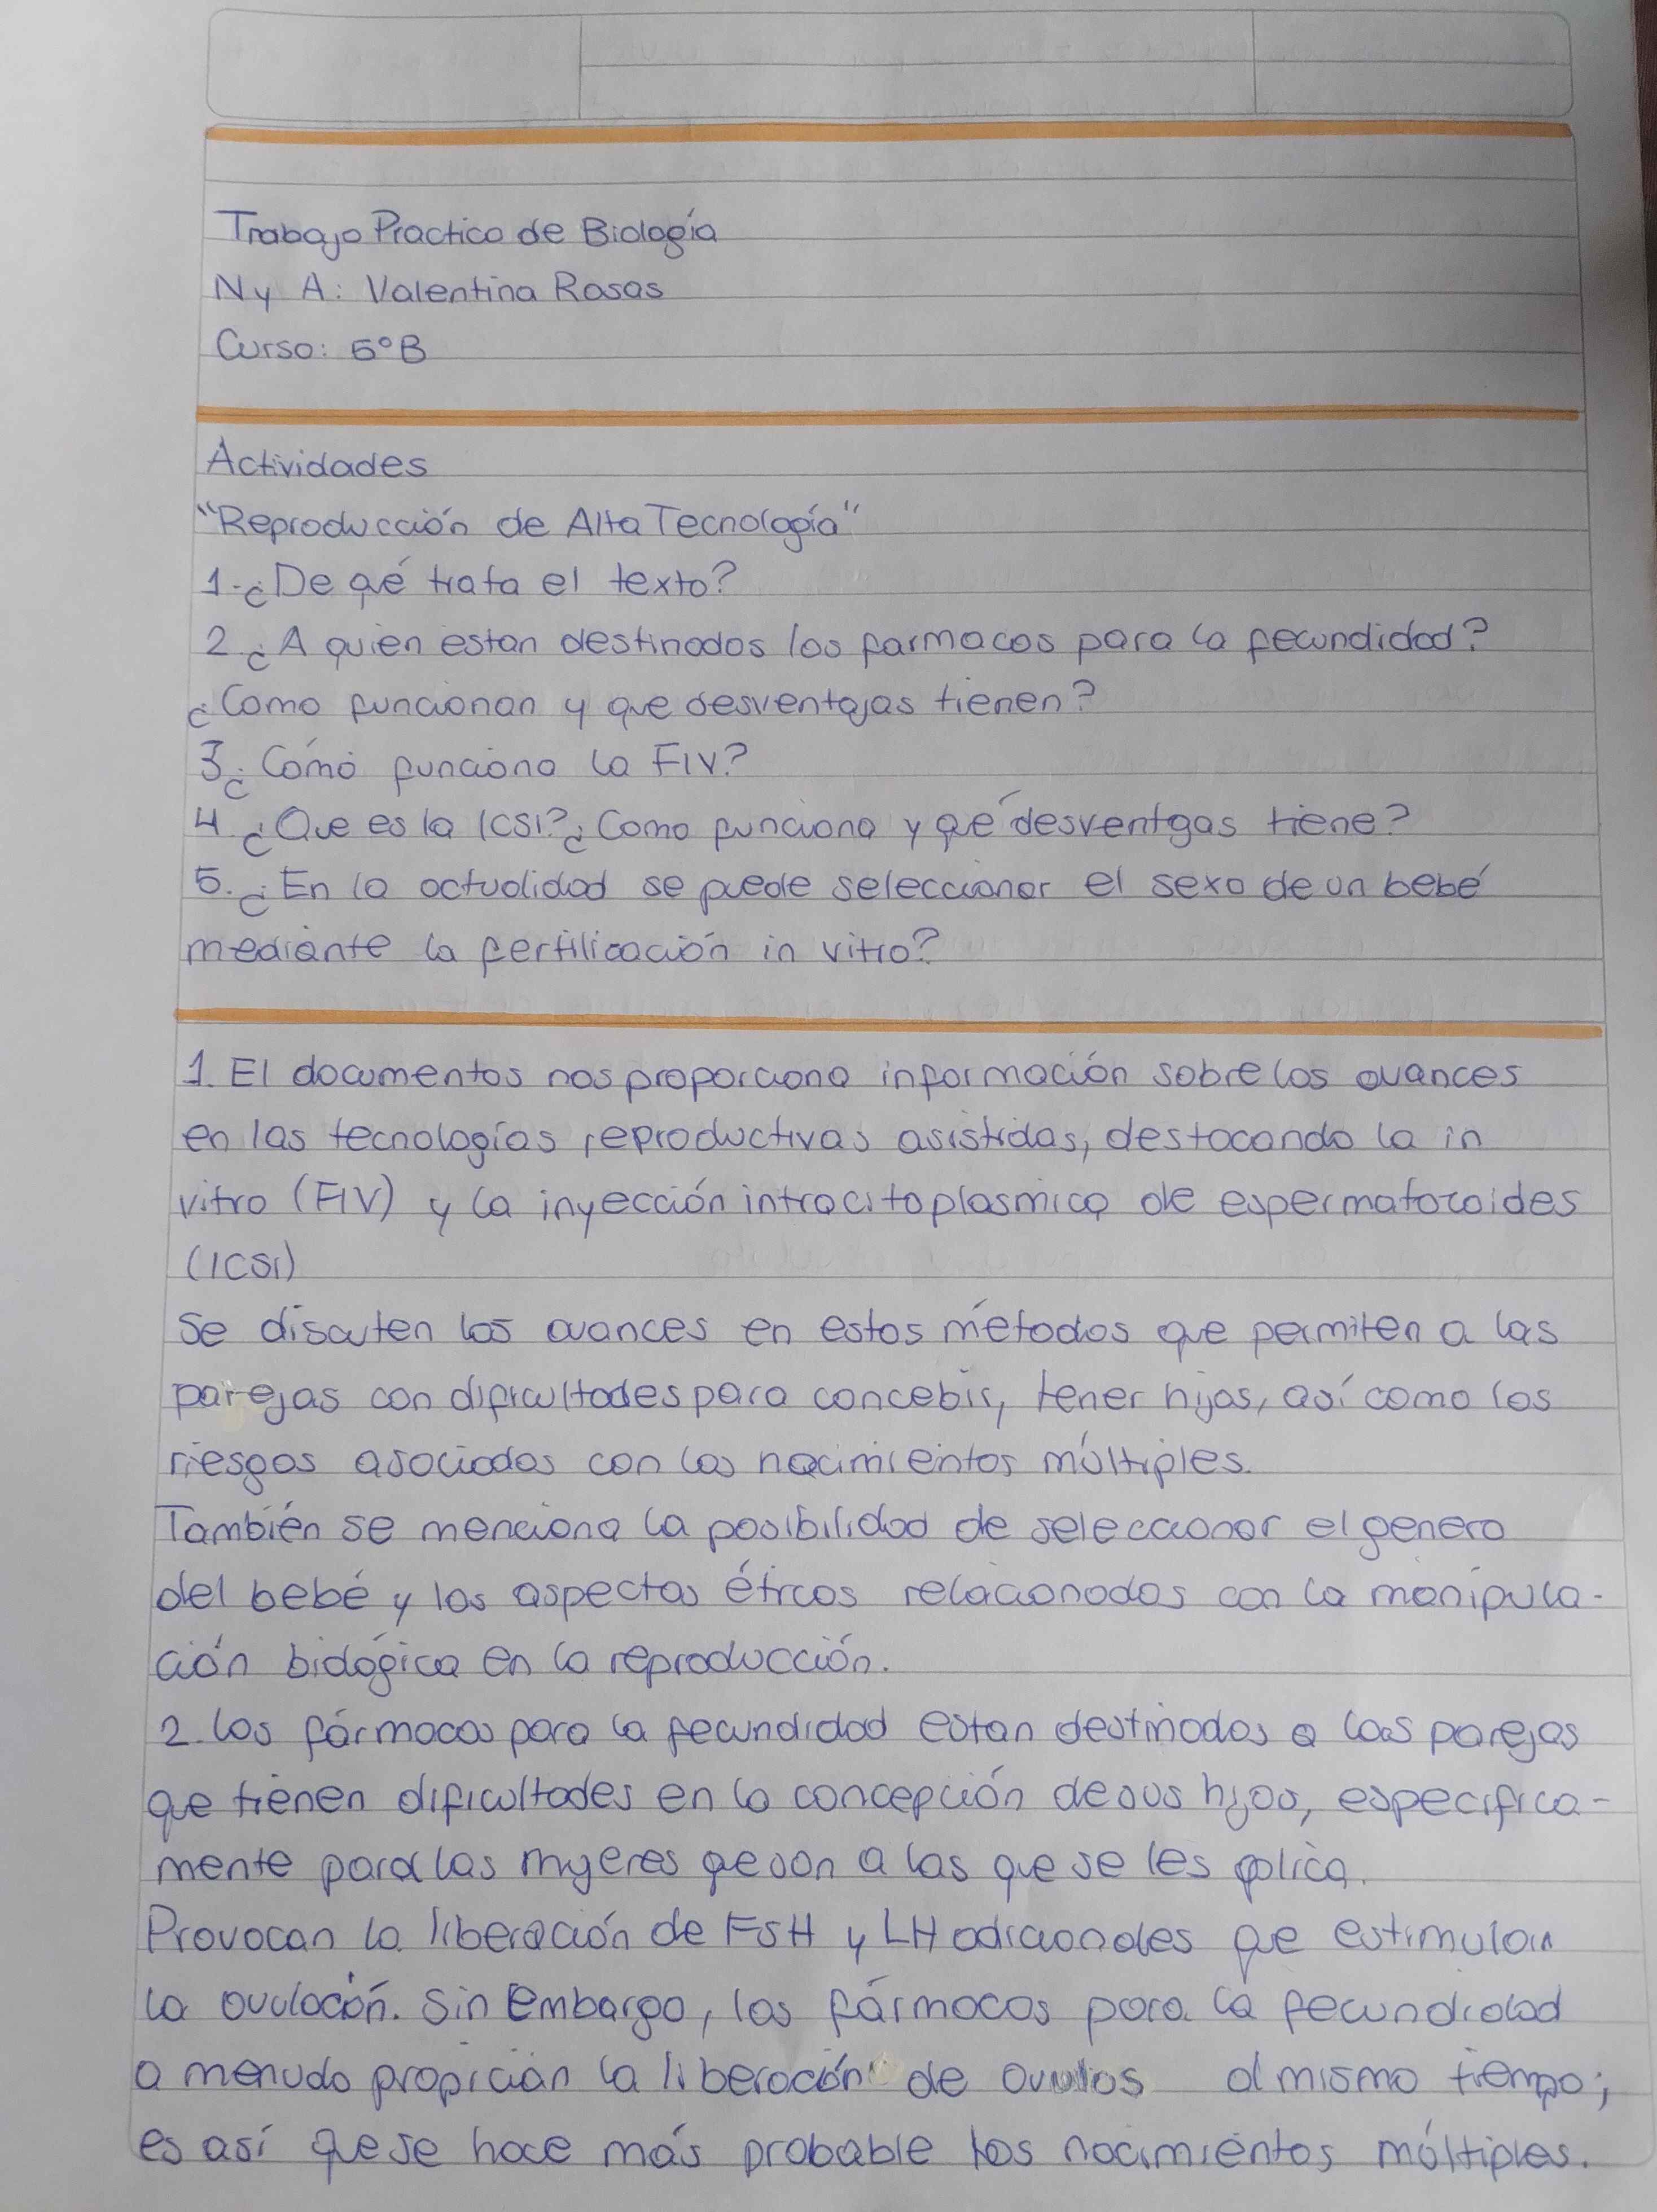 Trabajo Practico de Biología
N y A: Valentina Rosas
Curso: 5°B
Actividades
"Reproducción de Alta Tecnología"
1-¿De qué trata el texto?
2 ¿A quien estan destinados los farmacos para la fecundidad?
¿Como funcionan y que desventajas tienen?
3 ¿Cómo funciona la FIV?
4 ¿Que es la ICSI? ¿Como funciona y qué desventajas tiene?
5. ¿En la actualidad se puede seleccionar el sexo de un bebé
mediante la fertilización in vitro?
1. El documentos nos proporciona información sobre los avances
en las tecnologías reproductivas asistidas, destacando la in
vitro (FIV) y la inyección intracitoplasmica de espermatozoides
(ICSI)
Se discuten los avances en estos métodos que permiten a las
parejas con dificultades para concebir, tener hijos, así como los
riesgos asociados con los nacimientos múltiples.
También se menciona la posibilidad de seleccionar el genero
del bebé y los aspectos éticos relacionados con la manipula-
ción biológica en la reproducción.
2. Los fármacos para la fecundidad estan destinados a las parejas
que tienen dificultades en la concepción de sus hijos, especifica-
mente para las mujeres que son a las que se les aplica.
Provocan la liberación de FSH y LH adicionales que estimulan
la ovulación. Sin embargo, los fármacos para la fecundidad
a menudo propician la liberación de ovulos al mismo tiempo;
es así que se hace más probable los nacimientos múltiples.